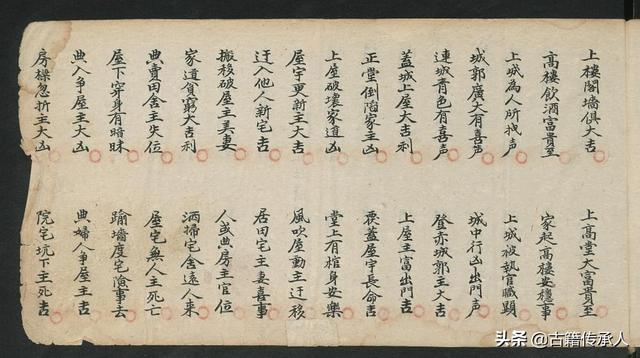 上樓閣墻俱大吉 上高堂大富貴至
高樓飲酒富貴至 家起高樓安穩事
上城為人所找声 上城被執官職顕
城郭廣大有喜声 城中行凶出門声
連城青色有喜声 登赤城郭主大吉
蓋城上屋大吉利 上屋主富出門吉
正堂倒陷家主凶 覆蓋屋宇長命吉
上屋破壞家道凶 堂上有棺身安樂
屋宇更新主大吉 風吹屋動主迁移
迁入他人新宅吉 居田宅主妻喜事
搬移破屋主美妻 人或典房主官位
家道貧窮大吉利 洒掃宅舍遠人来
典賣田舍主失位 屋宅無人主死亡
屋下穿身有暗昧 踰墻度宅險事去
典人争屋主大凶 典婦人争屋主吉
房樑忽折主大凶 院宅坑下主死吉
头条 @古籍传承人